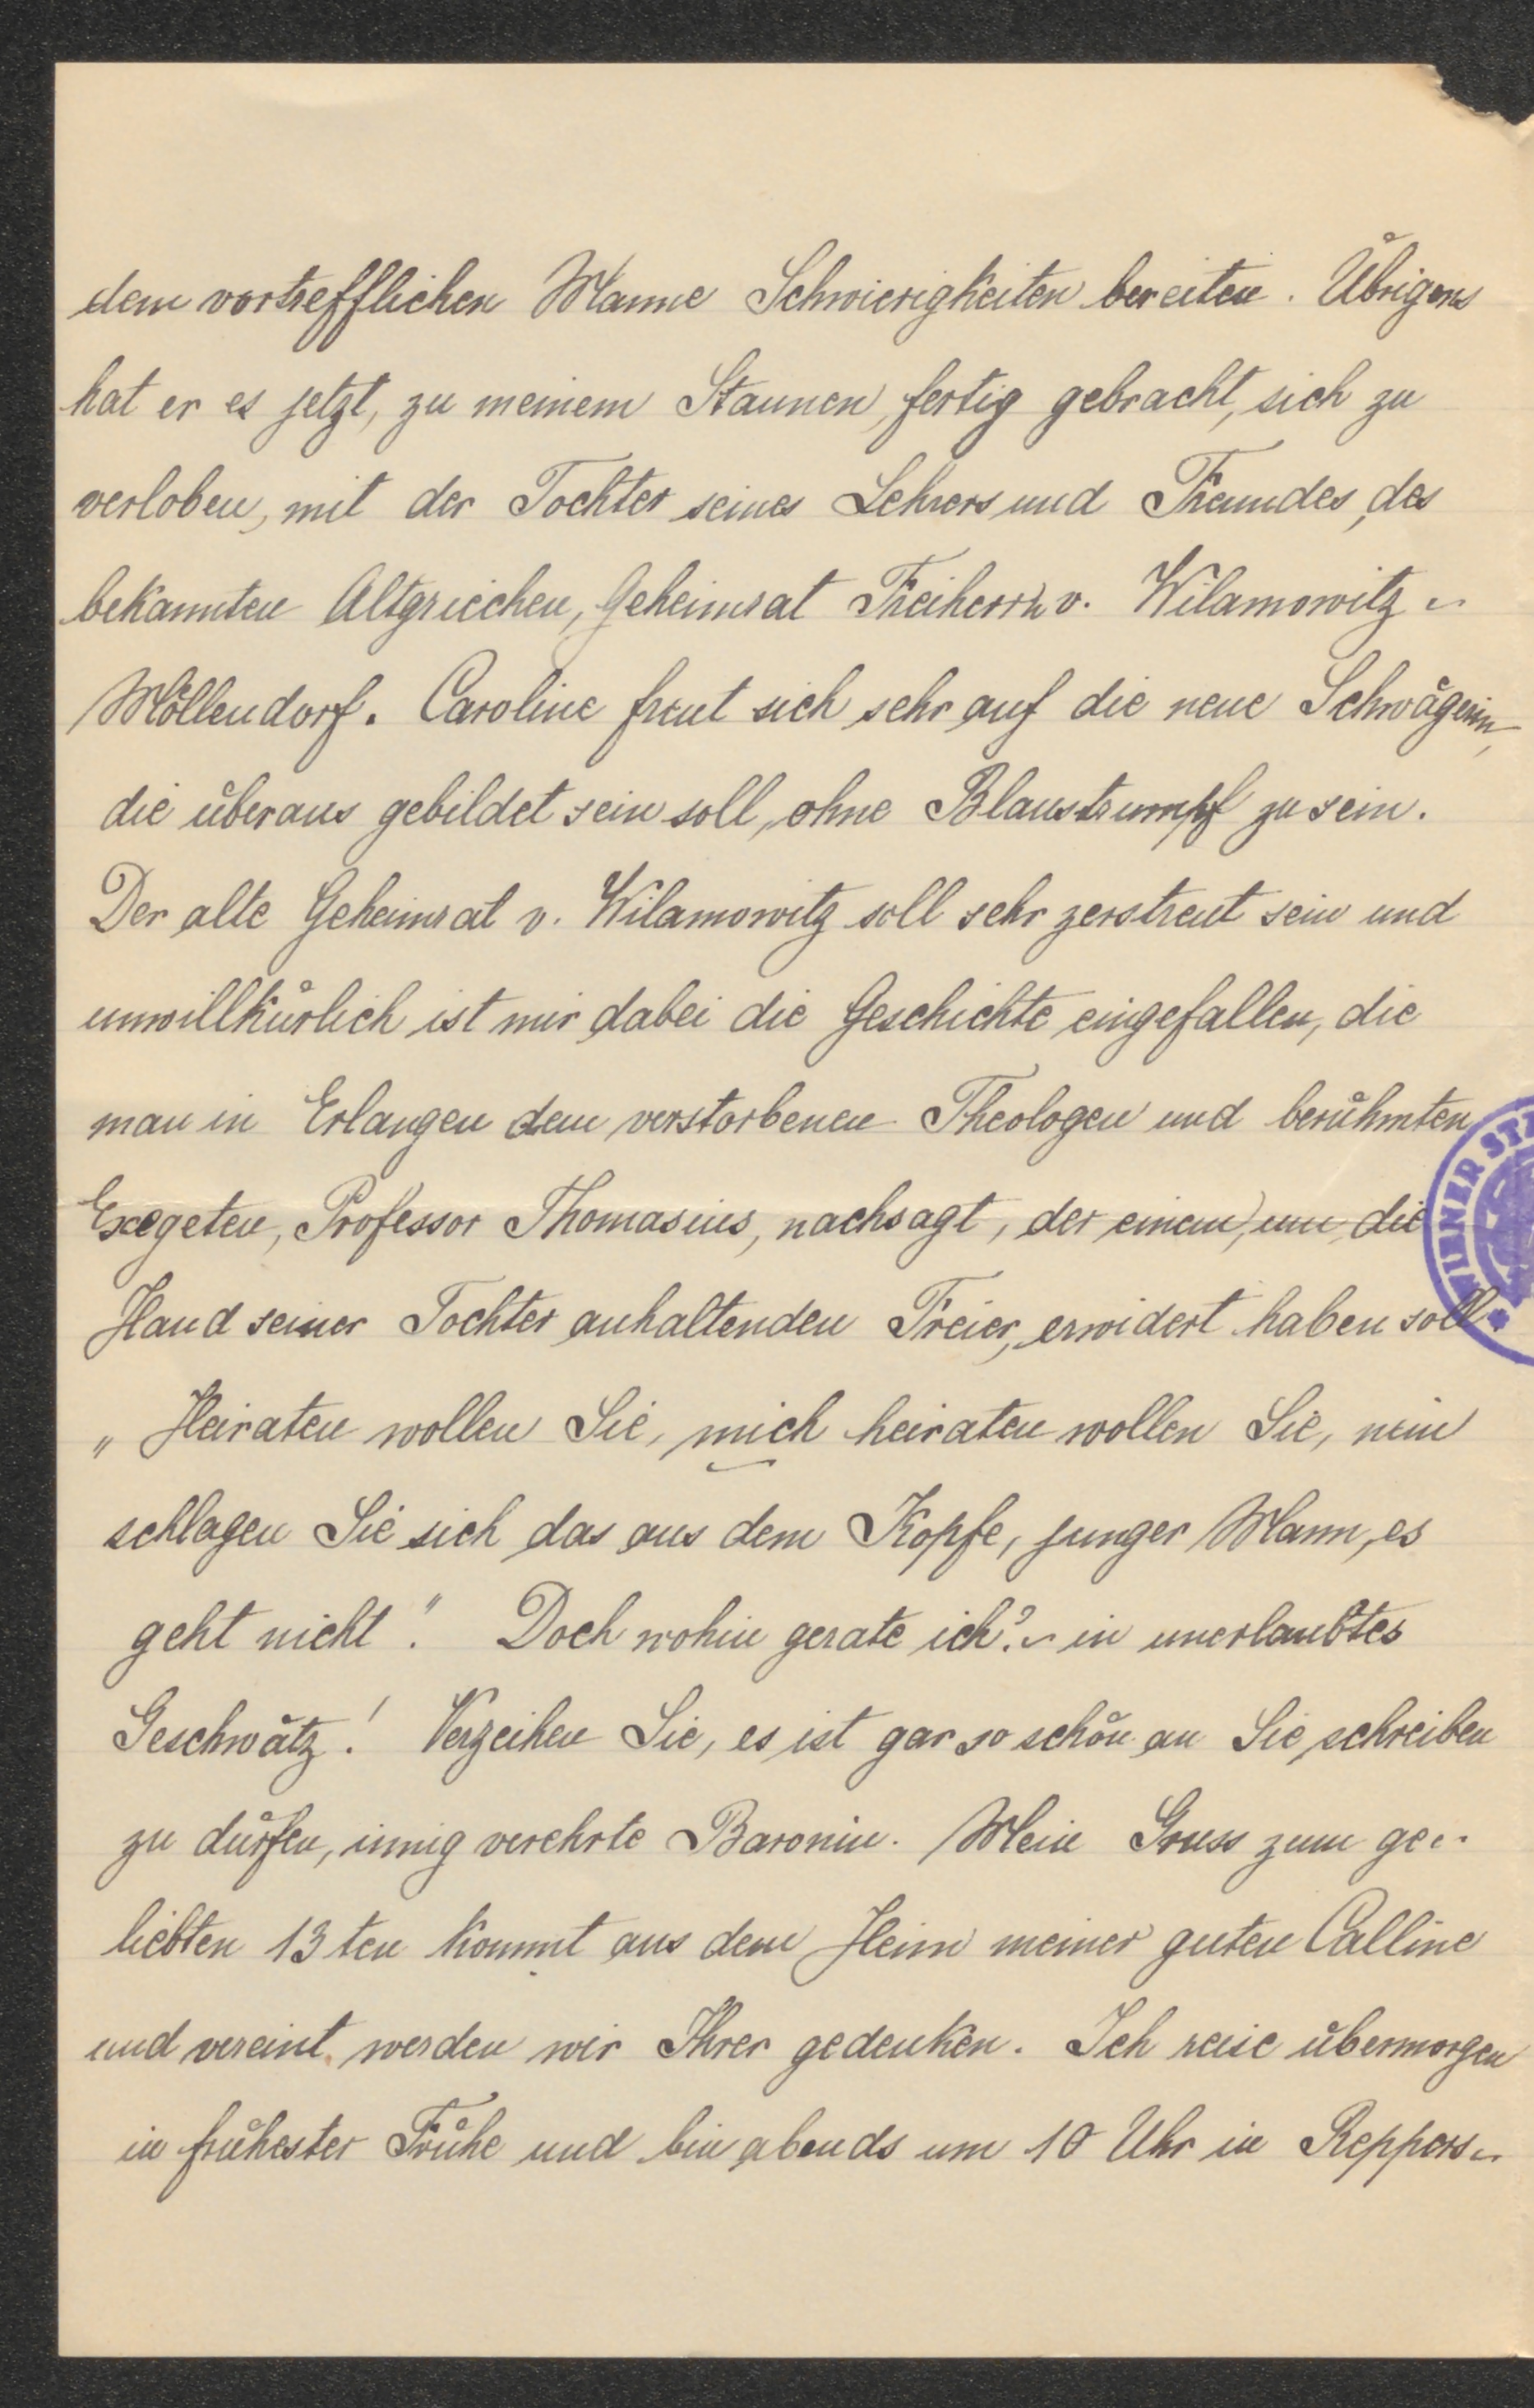 dem vortrefflichen Manne Schwierigkeiten bereiten. Übrigens
hat er es jetzt, zu meinem Staunen, fertig gebracht, sich zu
verloben, mit der Tochter seines Lehrers und Freundes, des
bekannten Altgriechen, Geheimrat Freiherrn v. Wilamowitz -
Möllendorf. Caroline freut sich sehr auf die neue Schwägerin,
die überaus gebildet sein soll, ohne Blaustrumpf zu sein.
Der alte Geheimrat v. Wilamowitz soll sehr zerstreut sein und
unwillkürlich ist mir dabei die Geschichte eingefallen, die
man in Erlangen dem verstorbenen Theologen und berühmten
Exegeten, Professor Thomasius, nachsagt, der einem, um die
Hand seiner Tochter anhaltenden Freier, erwidert haben soll
„Heiraten wollen Sie, mich heiraten wollen Sie, nein
schlagen Sie sich das aus dem Kopfe, junger Mann, es
geht nicht." Doch wohin gerate ich? - in unerlaubtes
Geschwätz! Verzeihen Sie, es ist gar so schön an Sie schreiben
zu dürfen, innig verehrte Baronin. Mein Gruss zum ge-
liebten 13ten kommt aus dem Heim meiner guten Calline
und vereint werden wir Ihrer gedenken. Ich reise übermorgen
in frühester Frühe und bin abends um 10 Uhr in Reppers-
WIENER